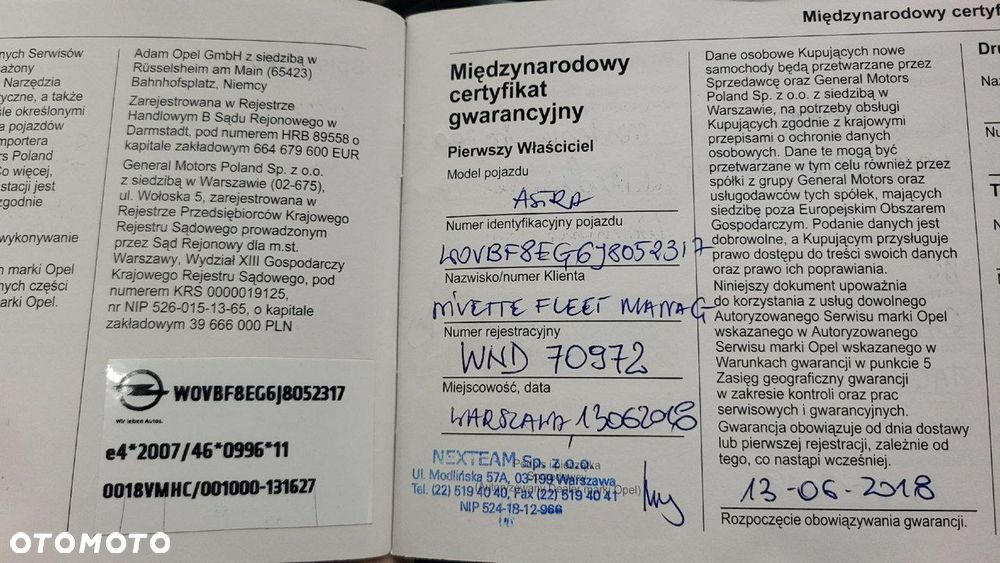 nych Serwisów
ażony
Narzędzia
yczne, a także
śle określonymi
a pojazdów
mportera
rs Poland
Co więcej,
stacji jest
zgodnie
wykonywanie
h marki Opel
nych części
arki Opel.
Adam Opel GmbH z siedzibą w
Rüsselsheim am Main (65423)
Bahnhofsplatz, Niemcy
Zarejestrowana w Rejestrze
Handlowym B Sądu Rejonowego w
Darmstadt, pod numerem HRB 89558 o
kapitale zakładowym 664 679 600 EUR
General Motors Poland Sp. z o.o.
z siedzibą w Warszawie (02-675),
ul. Wołoska 5, zarejestrowana w
Rejestrze Przedsiębiorców Krajowego
Rejestru Sądowego prowadzonym
przez Sąd Rejonowy dla m.st.
Warszawy, Wydział XIII Gospodarczy
Krajowego Rejestru Sądowego, pod
numerem KRS 0000019125,
nr NIP 526-015-13-65, o kapitale
zakładowym 39 666 000 PLN
W0VBF8EG6J8052317
Wir leben Autos.
e4*2007/46*0996*11
0018VMHC/001000-131627
Międzynarodowy certyf
Międzynarodowy
certyfikat
gwarancyjny
Pierwszy Właściciel
Model pojazdu
ASTRA
Numer identyfikacyjny pojazdu
W0VBF8EG6J8052317
Nazwisko/numer Klienta
NIVETTE FLEET MANAG
Numer rejestracyjny
WND 70972
Miejscowość, data
WARSZAWA 13062018
NEXTEAM Sp. z o.o.
Ul. Modlińska 57A, 03-199 Warszawa
Tel. (22) 519 40 40, Fax (22) 519 40 41
(Autoryzowany Dealer marki Opel)
NIP 524-18-12-966
Dane osobowe Kupujących nowe
samochody będą przetwarzane przez
Sprzedawcę oraz General Motors
Poland Sp. z o.o. z siedzibą w
Warszawie, na potrzeby obsługi
Kupujących zgodnie z krajowymi
przepisami o ochronie danych
osobowych. Dane te mogą być
przetwarzane w tym celu również przez
spółki z grupy General Motors oraz
usługodawców tych spółek, mających
siedzibę poza Europejskim Obszarem
Gospodarczym. Podanie danych jest
dobrowolne, a Kupującym przysługuje
prawo dostępu do treści swoich danych
oraz prawo ich poprawiania.
Niniejszy dokument upoważnia
do korzystania z usług dowolnego
Autoryzowanego Serwisu marki Opel
wskazanego w Autoryzowanego
Serwisu marki Opel wskazanego w
Warunkach gwarancji w punkcie 5
Zasięg geograficzny gwarancji
w zakresie kontroli oraz prac
serwisowych i gwarancyjnych.
Gwarancja obowiązuje od dnia dostawy
lub pierwszej rejestracji, zależnie od
tego, co nastąpi wcześniej.
13-06-2018
Rozpoczęcie obowiązywania gwarancji.
Dru
Naz
Nu
T
OTOMOTO